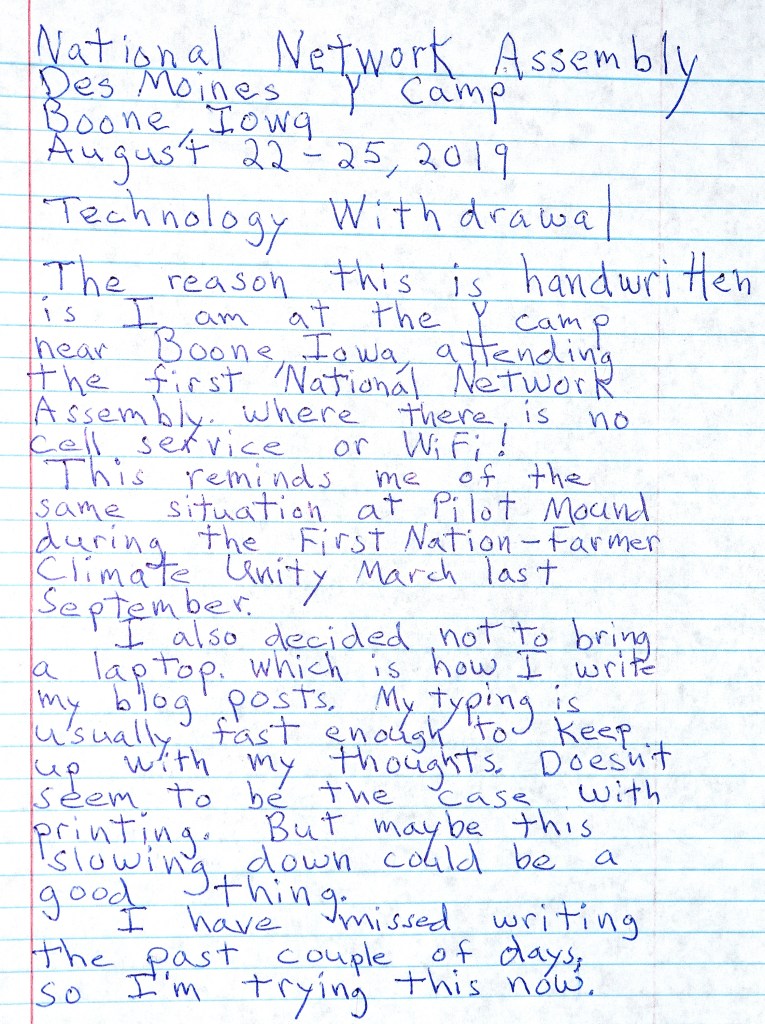 National Network Assembly
Des Moines Y Camp
Boone, Iowa
August 22-25, 2019
Technology Withdrawal
The reason this is handwritten
is I am at the Y camp
near Boone, Iowa, attending
the first National Network
Assembly. where there, is no
cell service or WiFi!
This reminds me of the
same situation at Pilot Mound
during the First Nation-Farmer
Climate Unity March last
September.
I also decided not to bring
a laptop. which is how I write
my blog posts. My typing is
usually fast enough to keep
up with my thoughts. Doesn't
seem to be the case with
printing. But maybe this
slowing down could be a
good thing.
I have missed writing
the past couple of days,
so I'm trying this now.